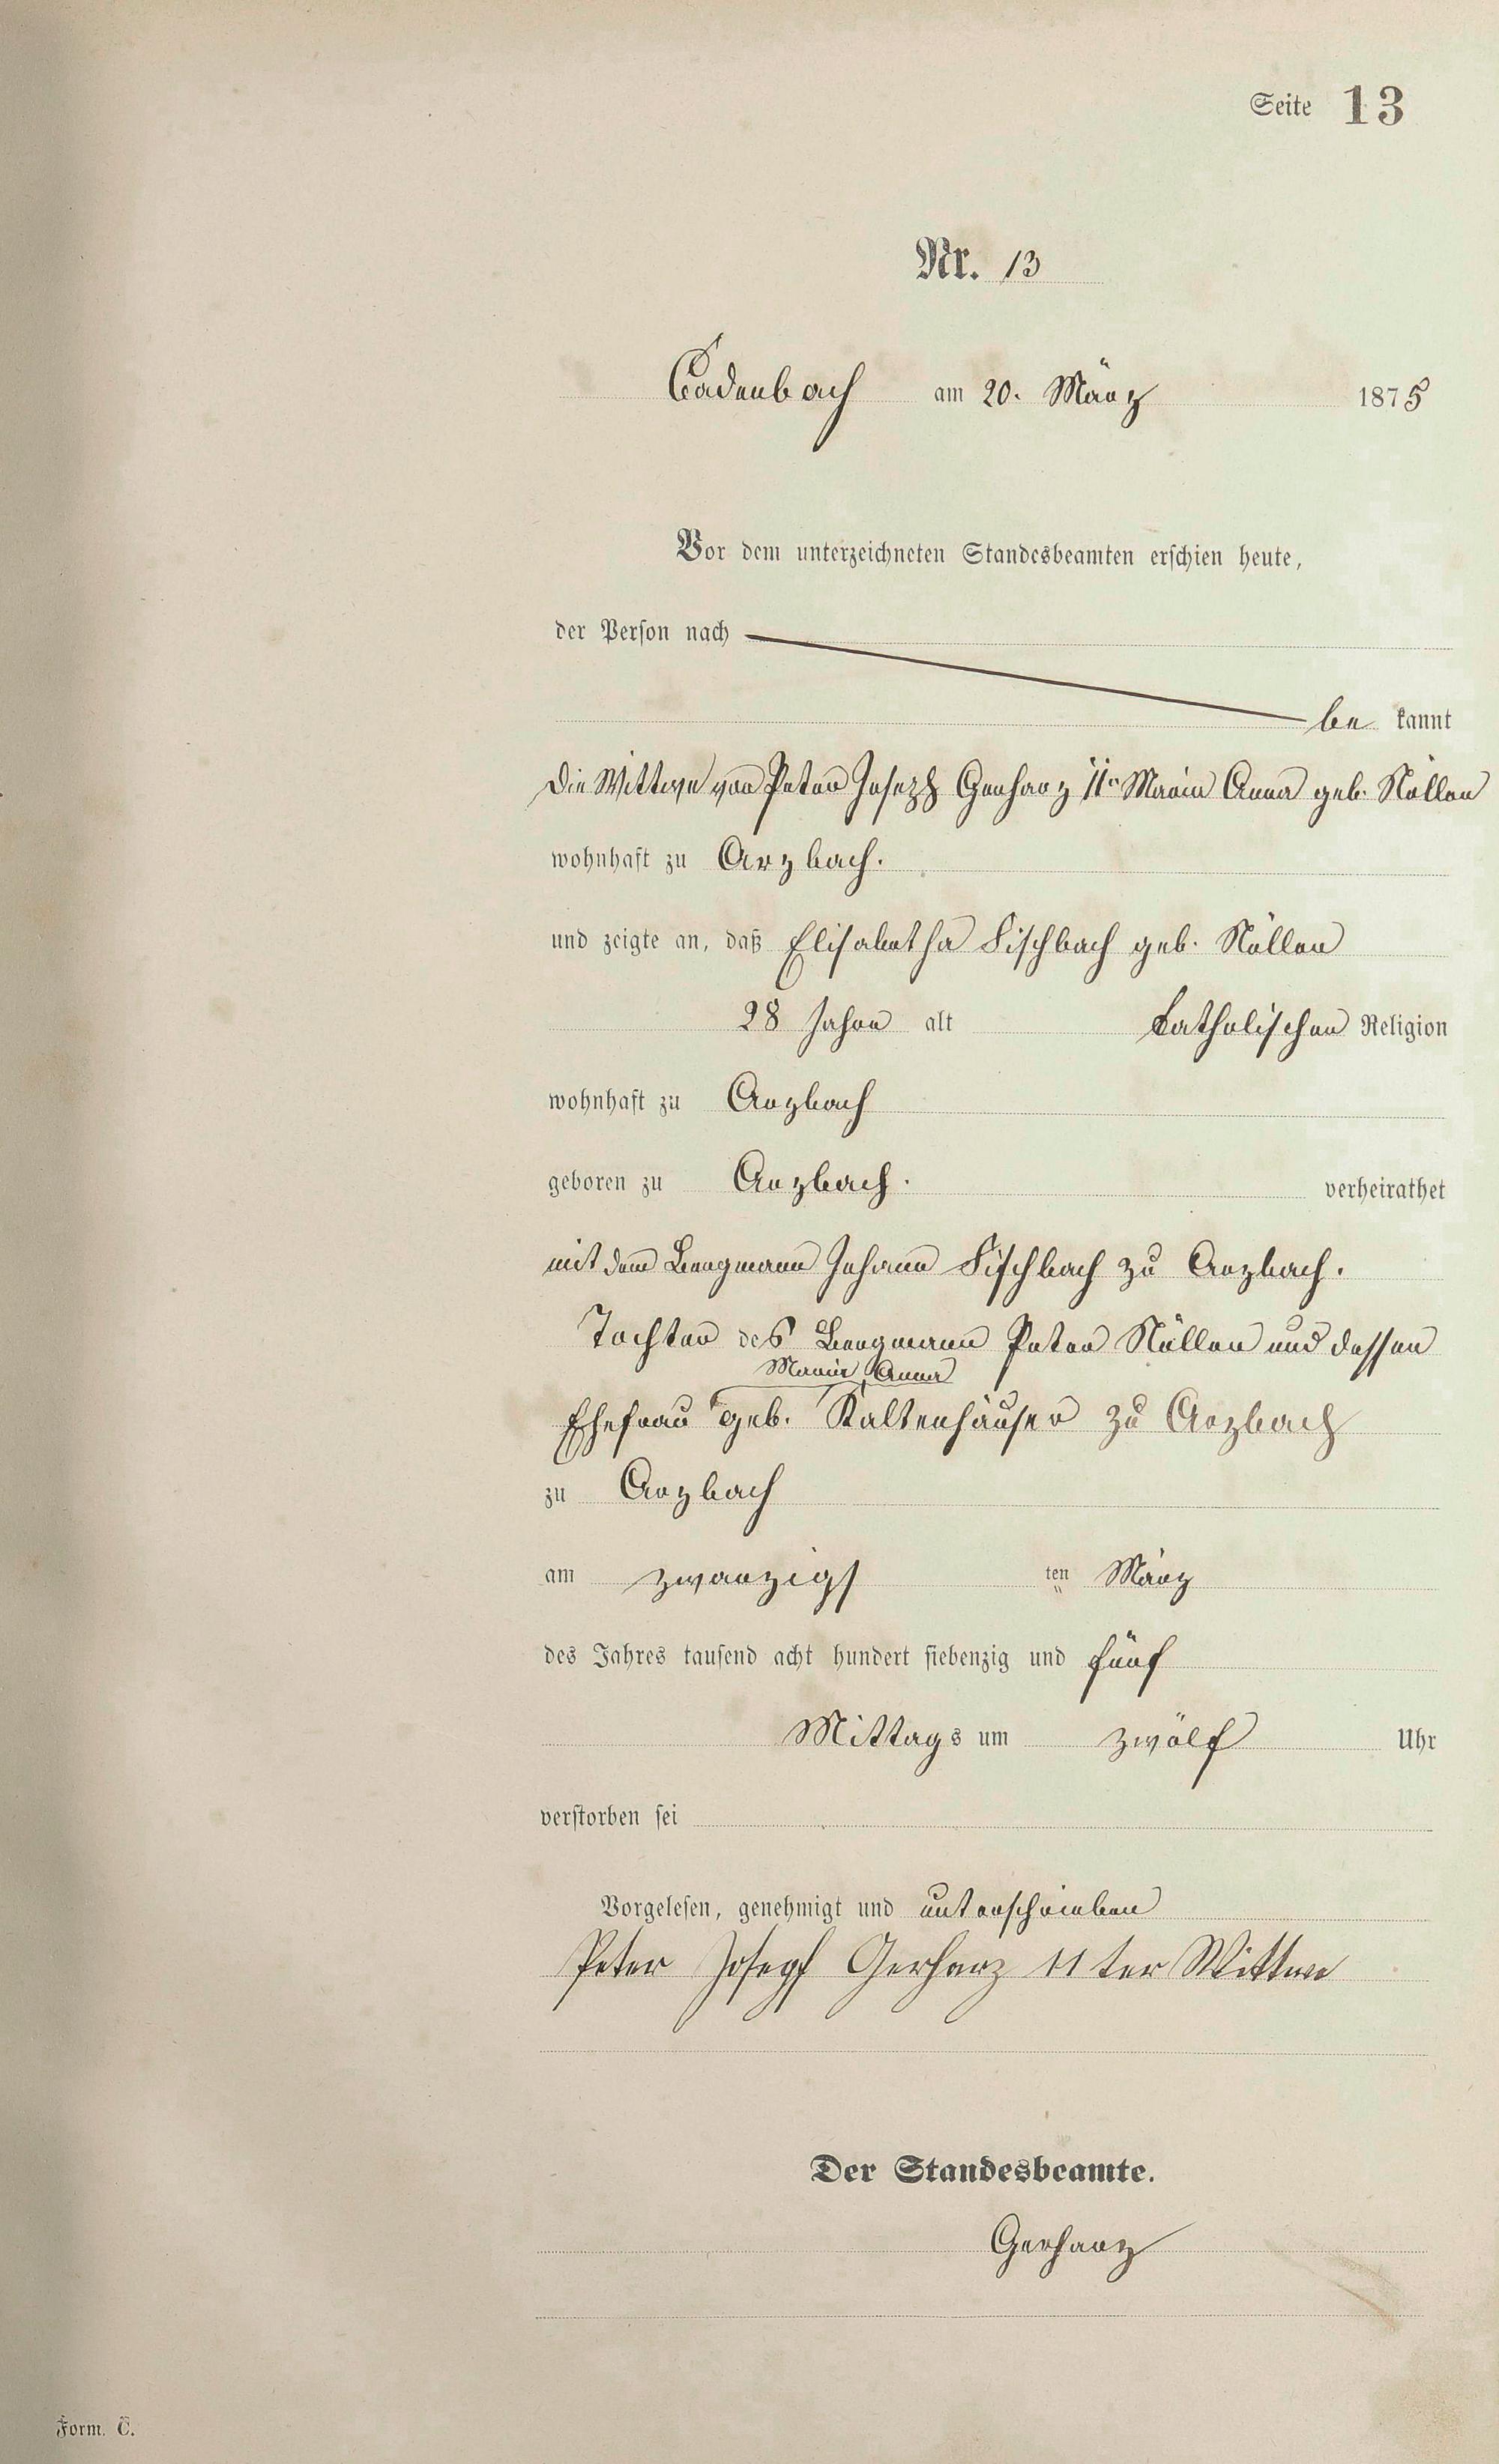 Seite 13
Nr. 13
Cadenbach am 20. März 1875
Vor dem unterzeichneten Standesbeamten erschien heute,
der Person nach
be kannt
die Wittwe von Peter Joseph Gerharz IIr Maria Anna geb. Nöllen
wohnhaft zu Arzbach.
und zeigte an, daß Elisabetha Fischbach geb. Nöllen
28 Jahre alt katholischen Religion
wohnhaft zu Arzbach
geboren zu Arzbach. verheirathet
mit dem Bergmann Johann Fischbach zu Arzbach.
Tochter des Bergmann Peter Nöllen und dessen
Maria Anna
Ehefrau geb. Kaltenhäuser zu Arzbach
zu Arzbach
am zwanzigs ten März
des Jahres tausend acht hundert siebenzig und fünf
Mittags um zwölf Uhr
verstorben sei
Vorgelesen, genehmigt und unterschrieben
Peter Josepf Gerharz 11 ter Wittwe
Der Standesbeamte.
Gerharz
Form. C.